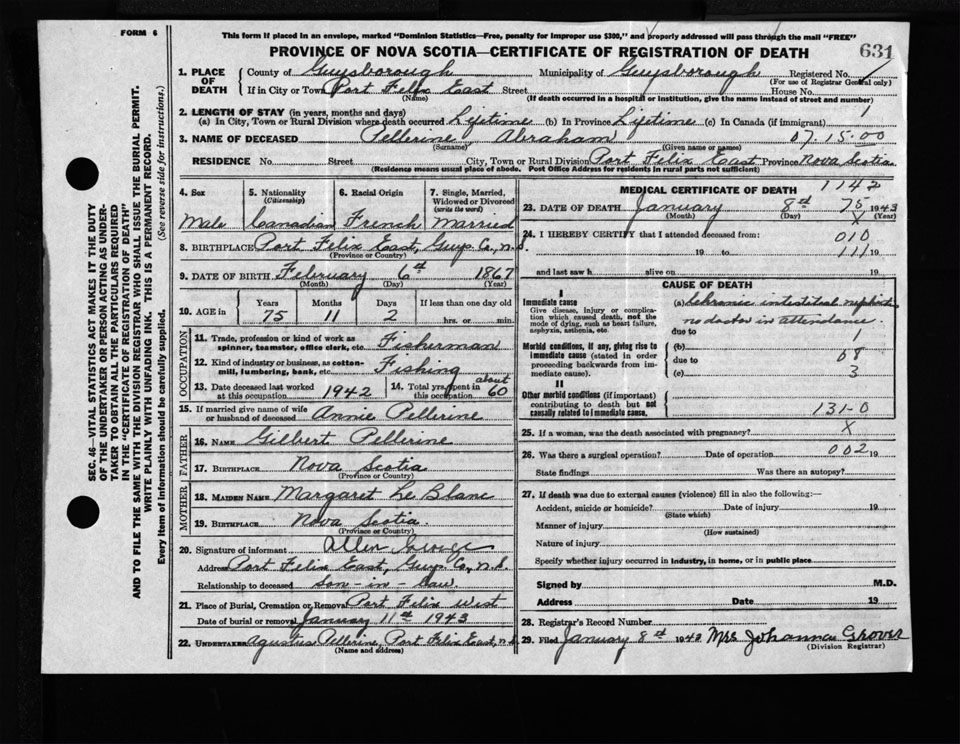 FORM 6
This form if placed in an envelope, marked "Dominion Statistics—Free, penalty for improper use $300," and properly addressed will pass through the mail "FREE"
PROVINCE OF NOVA SCOTIA—CERTIFICATE OF REGISTRATION OF DEATH
631
1. PLACE OF DEATH
County of Guysborough Municipality of Guysborough Registered No.
(For use of Registrar General only)
If in City or Town Port Felix East Street House No.
(Name) (If death occurred in a hospital or institution, give the name instead of street and number)
2. LENGTH OF STAY (in years, months and days)
(a) In City, Town or Rural Division where death occurred Lifetime (b) In Province Lifetime (c) In Canada (if immigrant)
3. NAME OF DECEASED Pellerine Abraham 07.15.00
(Surname) (Given name or names)
RESIDENCE No. Street City, Town or Rural Division Port Felix East Province Nova Scotia
(Residence means usual place of abode. Post Office Address for residents in rural parts not sufficient)
SEC. 46—VITAL STATISTICS ACT MAKES IT THE DUTY
OF THE UNDERTAKER OR PERSON ACTING AS UNDER-
TAKER TO OBTAIN ALL THE PARTICULARS REQUIRED
IN THE "CERTIFICATE OF REGISTRATION OF DEATH"
AND TO FILE THE SAME WITH THE DIVISION REGISTRAR WHO SHALL ISSUE THE BURIAL PERMIT.
WRITE PLAINLY WITH UNFADING INK. THIS IS A PERMANENT RECORD.
Every item of Information should be carefully supplied. (See reverse side for instructions.)
4. Sex
Male
5. Nationality
(Citizenship)
Canadian
6. Racial Origin
French
7. Single, Married,
Widowed or Divorced
(write the word)
Married
8. BIRTHPLACE Port Felix East, Guys. Co., N.S.
(Province or Country)
9. DATE OF BIRTH February 6th 1867
(Month) (Day) (Year)
10. AGE in
Years Months Days If less than one day old
75 11 2 hrs. or min.
OCCUPATION
11. Trade, profession or kind of work as
spinner, teamster, office clerk, etc. Fisherman
12. Kind of industry or business, as cotton-
mill, lumbering, bank, etc. Fishing
13. Date deceased last worked
at this occupation 1942
14. Total yrs. spent in
this occupation about 60
15. If married give name of wife
or husband of deceased Annie Pellerine
FATHER
16. NAME Gilbert Pellerine
17. BIRTHPLACE Nova Scotia
(Province or Country)
MOTHER
18. MAIDEN NAME Margaret Le Blanc
19. BIRTHPLACE Nova Scotia
(Province or Country)
20. Signature of informant Allen George
Address Port Felix East, Guys. Co., N.S.
Relationship to deceased Son-in-Law
21. Place of Burial, Cremation or Removal Port Felix West
Date of burial or removal January 11th 1943
22. UNDERTAKER Agustus Pellerine, Port Felix East, N.S.
(Name and address)
MEDICAL CERTIFICATE OF DEATH 1142
23. DATE OF DEATH January 8th 75 1943
(Month) (Day) X (Year)
24. I HEREBY CERTIFY that I attended deceased from: 010
19 to 111 19
and last saw h alive on 19
CAUSE OF DEATH
I
Immediate cause
Give disease, injury or complica-
tion which caused death, not the
mode of dying, such as heart failure,
asphyxia, asthenia, etc.
(a) Chronic intestital nephritis
no doctor in attendance
due to
Morbid conditions, if any, giving rise to
immediate cause (stated in order
proceeding backwards from im-
mediate cause).
(b) 1
due to 08
(c) 3
II
Other morbid conditions (if important)
contributing to death but not
causally related to immediate cause.
131-0
25. If a woman, was the death associated with pregnancy? X
26. Was there a surgical operation? Date of operation 002 19
State findings Was there an autopsy?
27. If death was due to external causes (violence) fill in also the following:—
Accident, suicide or homicide? Date of injury 19
(State which)
Manner of injury
(How sustained)
Nature of injury
Specify whether injury occurred in industry, in home, or in public place
Signed by M.D.
Address Date 19
28. Registrar's Record Number
29. Filed January 8th 1943 Mrs Johanna Grover
(Division Registrar)